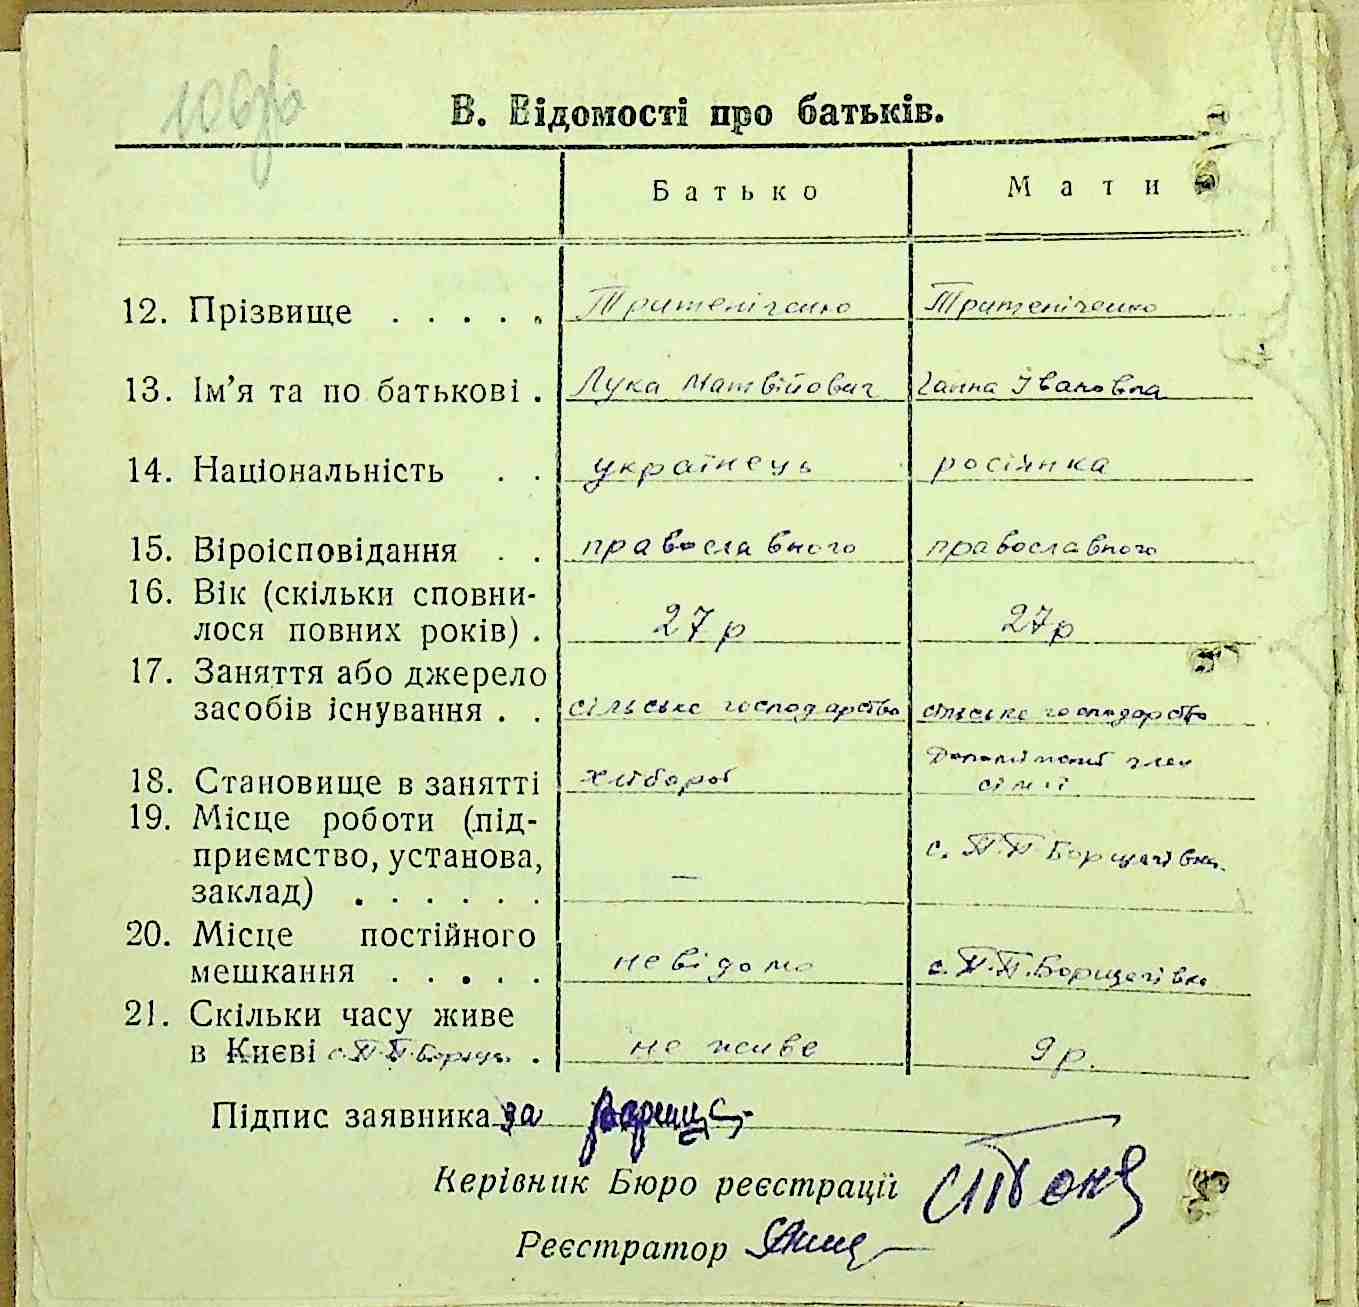 106
В. Відомості про батьків.
Батько Мати
12. Прізвище . . . . .
13. Ім'я та по батькові . Лука Матвійович Ганна Івановна
14. Національність . . українець росіянка
15. Віроісповідання . . православного православного
16. Вік (скільки сповни-
лося повних років) . 27 р 27 р
17. Заняття або джерело
засобів існування . . сільське господарство сільське господарство
18. Становище в занятті хлібороб член
сімії
19. Місце роботи (під-
приємство, установа, с. П.П. Борщагівка
заклад) . . . . . . —
20. Місце постійного
мешкання . . . . . невідомо с. П.П. Борщагівка
21. Скільки часу живе
в Києві с. П.П. Борщ. . не живе 9 р.
Підпис заявника за
Керівник Бюро реєстрації
Реєстратор